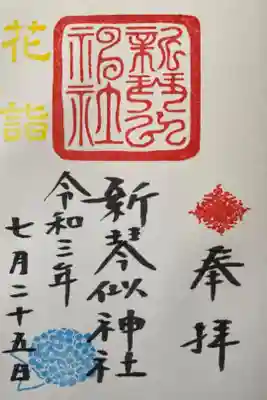 奉拝
新琴似
神社
新琴似神社
令和三年
七月二十五日
花詣